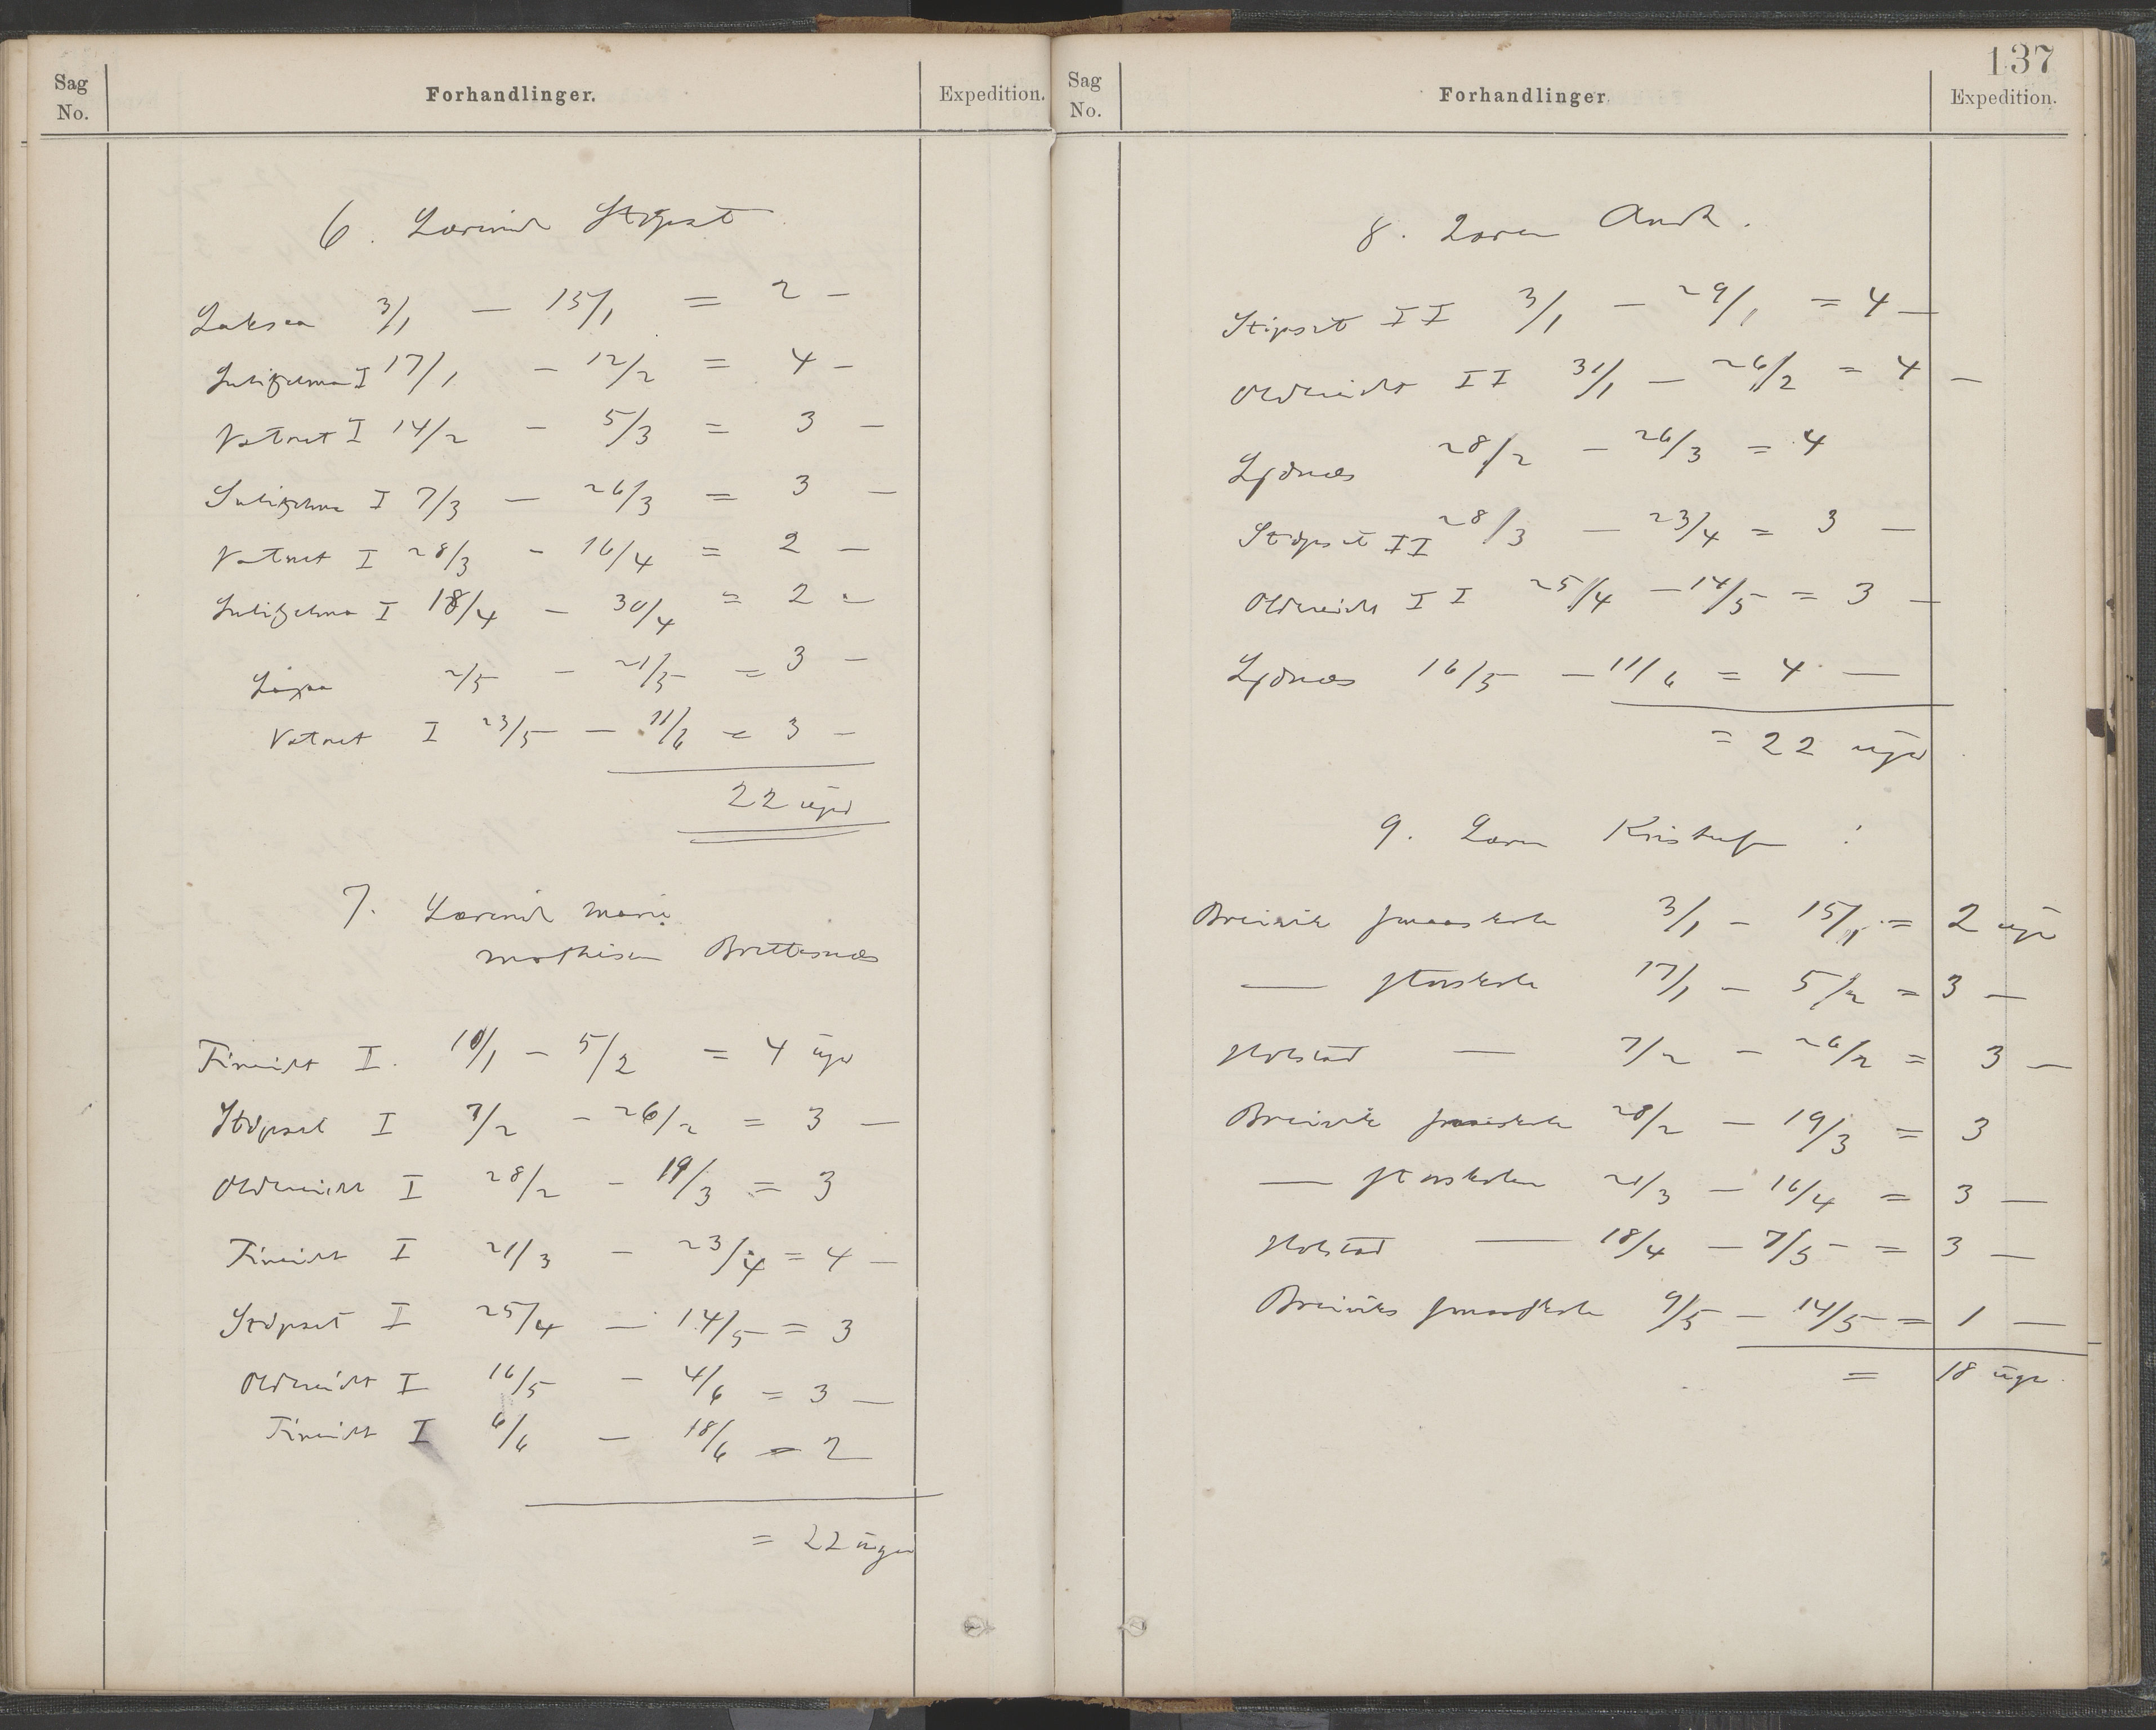 Sag
No.
Forhandlinger.
Expedition.
6. Lærerinde Støpset
Laksaa 3/1 — 15/1 = 2 —
Sulitjelma I 17/1 — 12/2 = 4 —
Vatnet I 14/2 — 5/3 = 3 —
Sulitjelma I 7/3 — 26/3 = 3 —
Vatnet I 28/3 — 16/4 = 2 —
Sulitjelma I 18/4 — 30/4 = 2 —
2/5 — 21/5 = 3 —
Vatnet I 23/5 — 11/6 = 3 —
22 uger
7. Lærerinde Marie
Mathisen Brettesnæs
Fineidet I. 10/1 — 5/2 = 4 uger
Støpset I 7/2 — 26/2 = 3 —
Oldereidet I 28/2 — 19/3 = 3
Fineidet I 21/3 — 23/4 = 4 —
Støpset I 25/4 — 14/5 = 3
Oldereidet I 16/5 — 4/6 = 3 —
Fineidet I 6/6 — 18/6 = 2
= 22 uger
137
Sag
No.
Forhandlinger.
Expedition.
8. Lærer
Støpset II 3/1 — 29/1 = 4 —
Oldereidet II 31/1 — 26/2 = 4 —
Ljønæs 28/2 — 26/3 = 4
Støpset II 28/3 — 23/4 = 3 —
Oldereidet II 25/4 — 14/5 = 3 —
Ljønæs 16/5 — 11/6 = 4 —
= 22 uger
9. Lærer Kristensen :
Breivik smaaskole 3/1 — 15/1 = 2 uger
— storskole 17/1 — 5/2 = 3 —
Holstad — 7/2 — 26/2 = 3 —
Breivik smaaskole 28/2 — 19/3 = 3
— storskolen 21/3 — 16/4 = 3 —
Holstad — 18/4 — 7/5 = 3 —
Breiviks smaaskole 9/5 — 14/5 = 1 —
= 18 uger